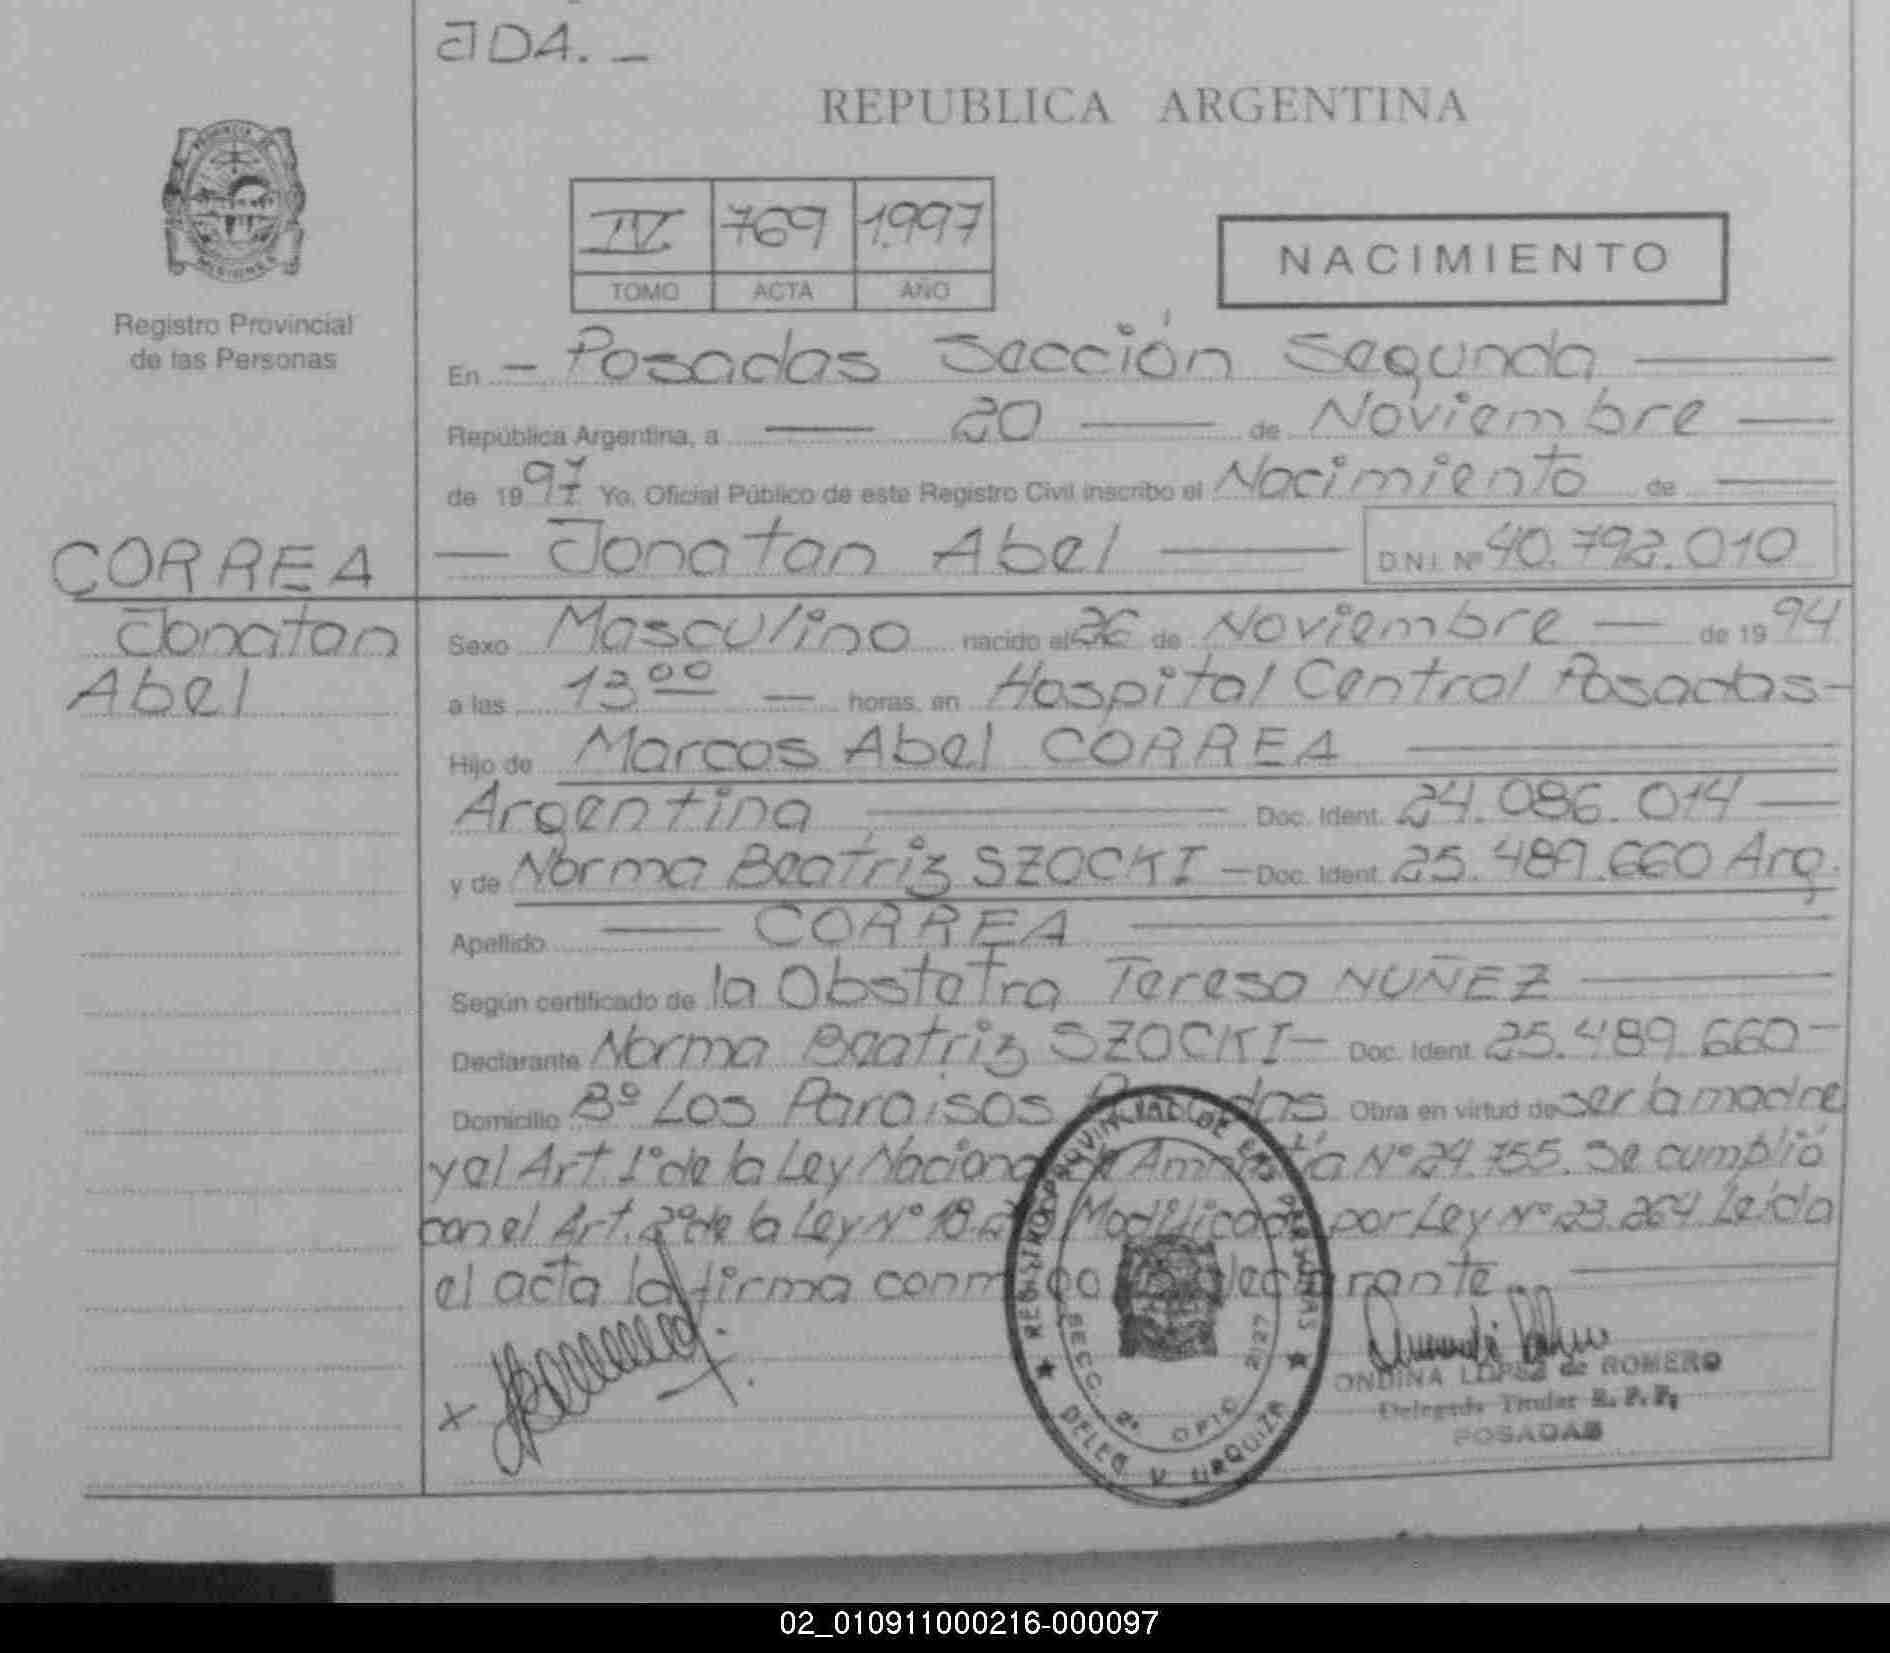 JDA. _
REPUBLICA ARGENTINA
PROVINCIA DE
MISIONES
Registro Provincial
de las Personas
IV 769 1.997
TOMO ACTA AÑO
NACIMIENTO
En - Posadas Sección Segunda
República Argentina, a 20 de Noviembre
de 1997 Yo, Oficial Público de este Registro Civil inscribo el Nacimiento de
CORREA
Jonatan Abel D.N.I. Nº 40.792.010
Jonatan
Abel
Sexo Masculino nacido el 26 de Noviembre de 1994
a las 13 00 horas, en Hospital Central Posadas-
Hijo de Marcos Abel CORREA
Argentina Doc. Ident. 24.086.014
y de Norma Beatríz SZOCKI - Doc. Ident. 25.489.660 Arg.
Apellido CORREA
Según certificado de la Obstetra Teresa NUÑEZ
Declarante Norma Beatriz SZOCKI- Doc. Ident. 25.489.660-
Domicilio Bº Los Paraisos Posadas Obra en virtud de ser la madre
y al Art. 1º de la Ley Nacional de Amnistía Nº 24.755. Se cumplió
con el Art. 2º de la Ley Nº 18.2 Modificada por Ley Nº 23.264 Leída
el acta la firma conmigo la declarante
REGISTRO PROVINCIAL DE LAS PERSONAS
SECC. 2ª OFIC 2127
DELEG. V. URQUIZA
ONDINA LOPEZ de ROMERO
Delegada Titular R. P. P.
POSADAS
02_010911000216-000097